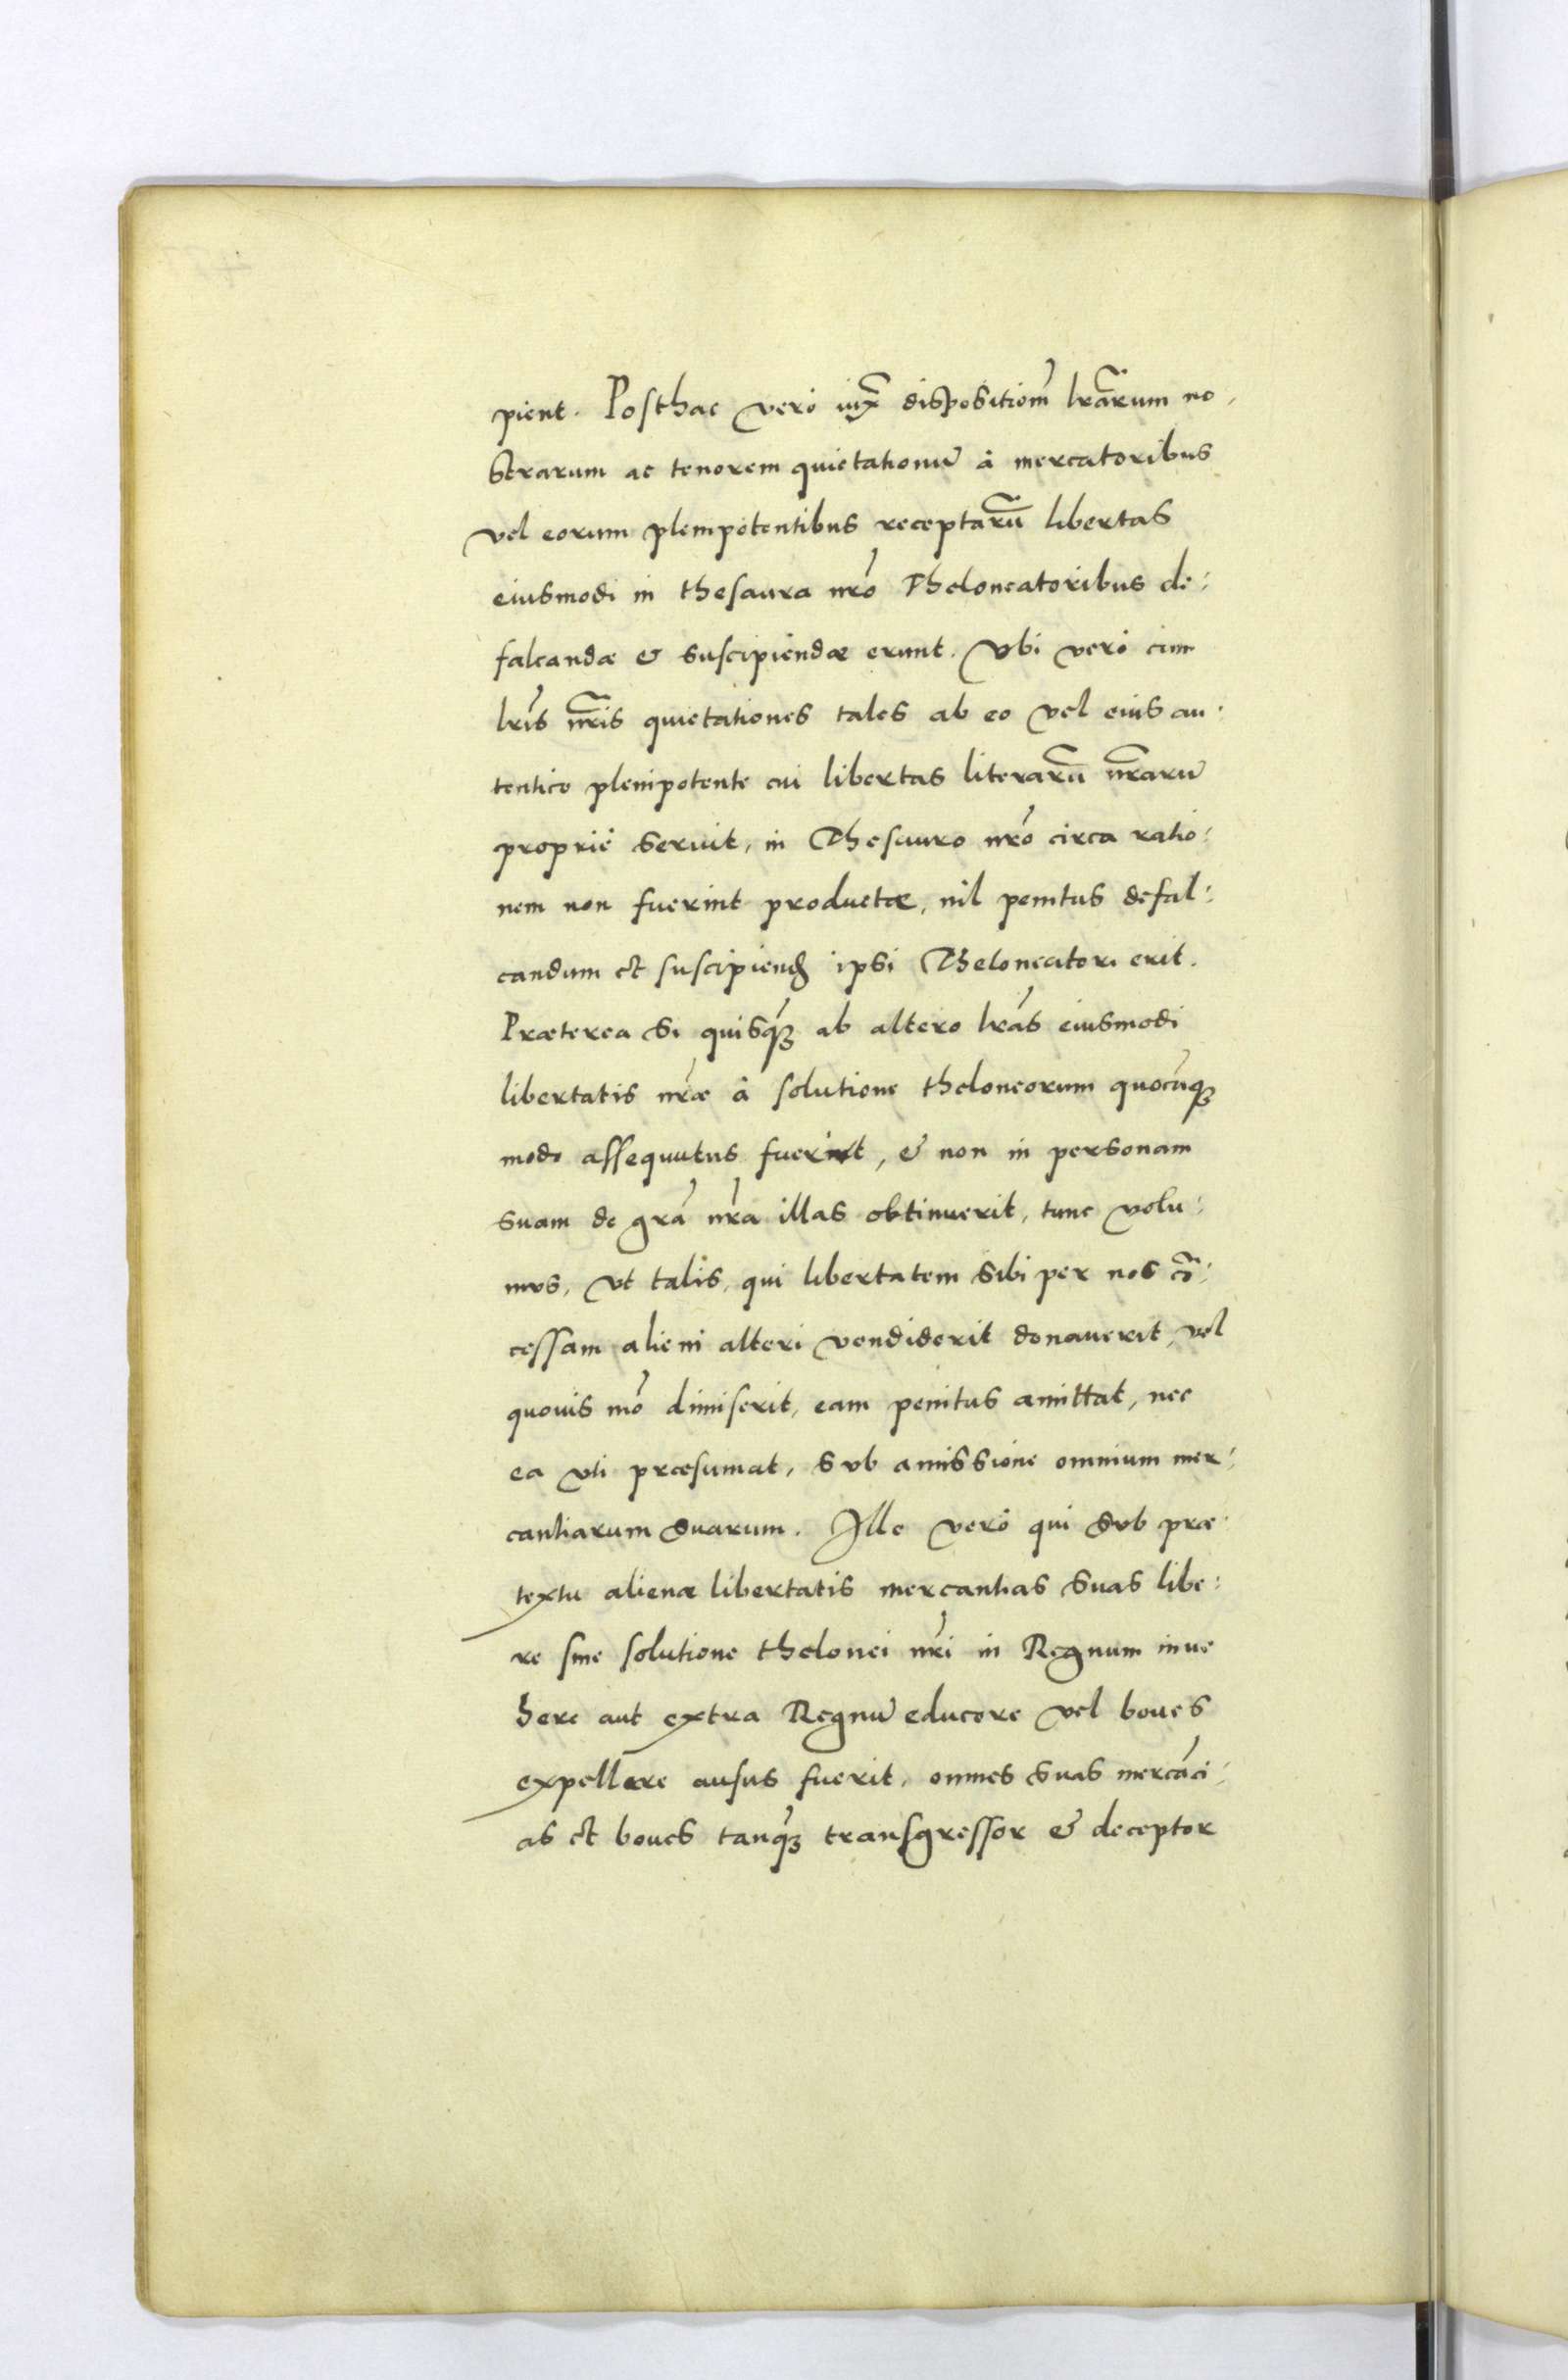 pient. Posthac verò iux̃ dispositiom̃ lr̃arum no,
strarum ac tenorem quietationũ à mercatoribus
vel eorum plenipotentibus receptarũ libertas
eiusmodi in thesaura nr̃o Theloneatoribus de:
falcandæ & suscipiendæ erunt. Vbi verò cum
lr̃is nr̃is quietationes tales ab eo vel eius au:
tentico plenipotente cui libertas literarũ nr̃arũ
propriè seruit, in Thesauro nr̃o circa ratio:
nem non fuerint productæ, nil penitus defal:
candum et suscipiend ipsi Theloneatori erit.
Præterea si quisq̃ ab altero lr̃as eiusmodi
libertatis nr̃æ à solutione theloneorum quocũq
modo assequutus fuerit, & non in personam
suam de gr̃a nr̃a illas obtinuerit, tunc volu:
mus, vt talis, qui libertatem sibi per nos cõ:
cessam alieni alteri vendiderit donauerit, vel
quouis mõ dimiserit, eam penitus amittat, nec
ea vti præsumat, sub amissione omnium mer:
cantiarum suarum. Ille verò qui sub præ
textu alienæ libertatis mercantias suas libe:
re sine solutione thelonei nr̃i in Regnum inue
here aut extra Regnũ educere vel boues
expellere ausus fuerit, omnes suas mercãci:
as et boues tanq̃ transgressor & deceptor